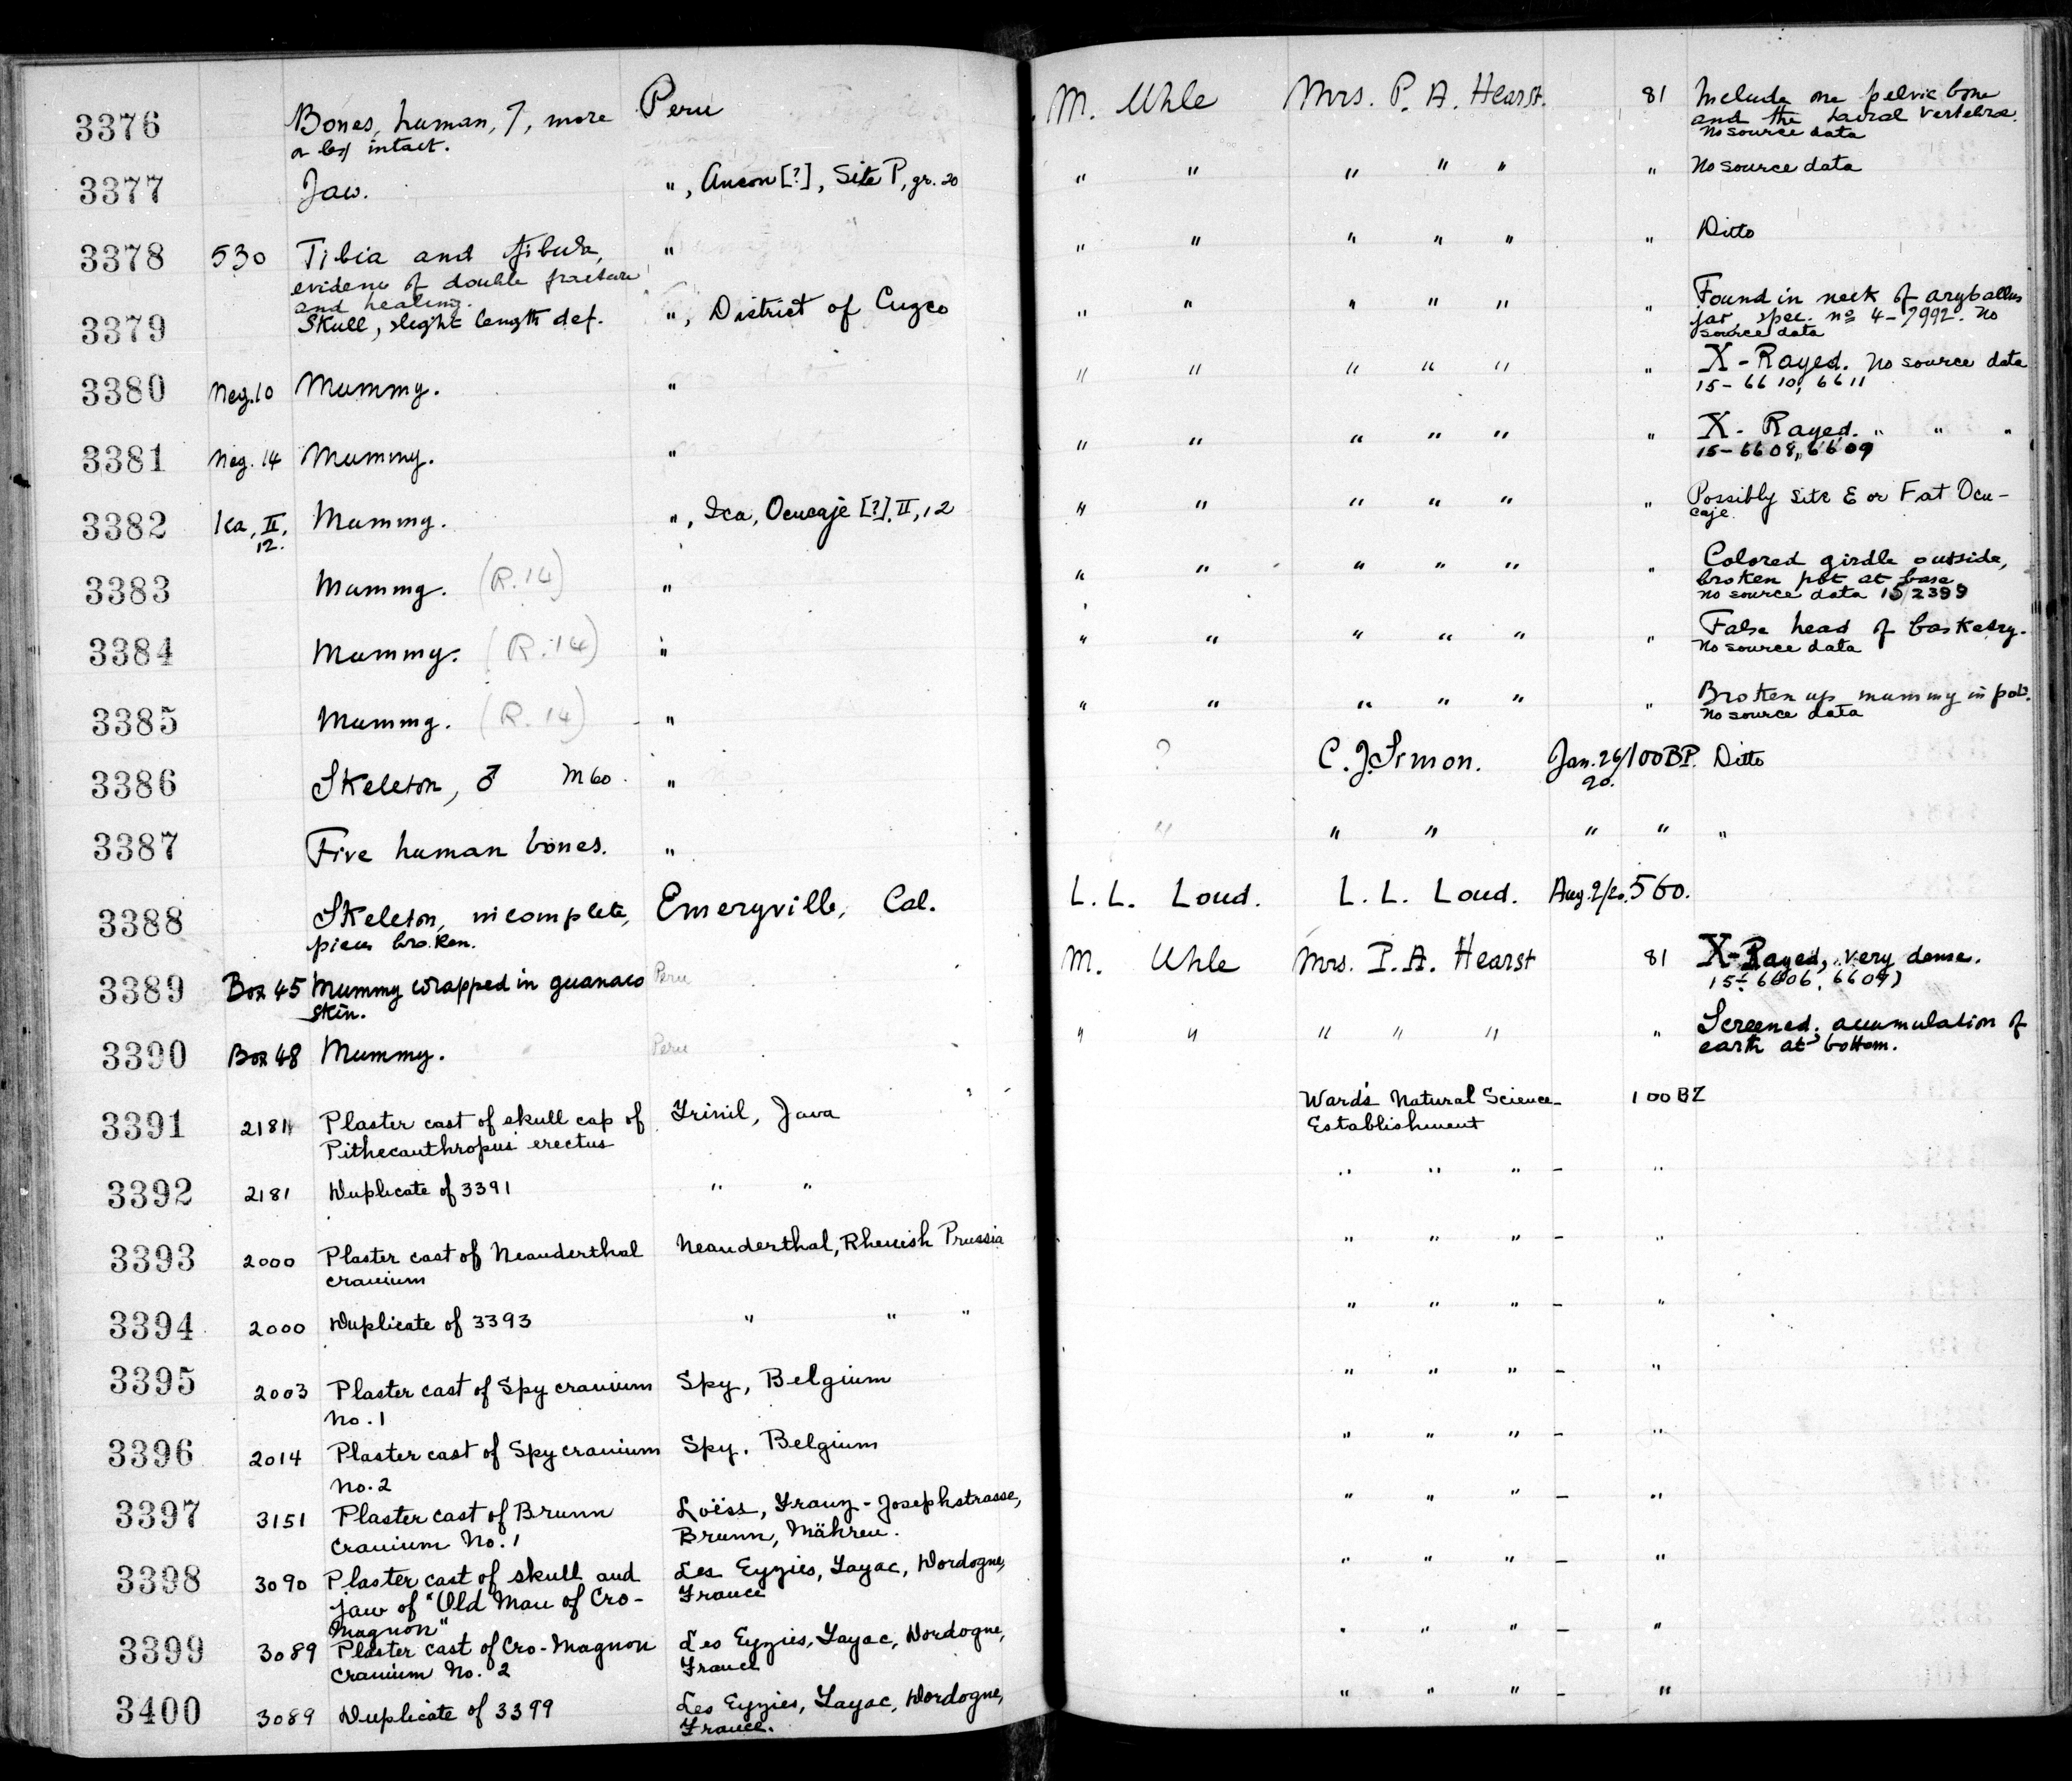 3376 Bones, human, 7, more Peru M. Uhle Mrs. P. A. Hearst. 81 Include one pelvic bone
or less intact. and the sacral vertebrae.
No source data
3377 Jaw. ", Ancon [?], Site P, gr. 20 " " " " " " No source data
3378 530 Tibia and fibula, " " " " " " " Ditto
evidence of double fracture
and healing.
3379 Skull, slight length def. ", District of Cuzco " " " " " " Found in neck of aryballus
jar, spec. no 4-7992. No
source data
3380 Neg. 10 Mummy. " " " " " " " X-Rayed. No source data
15-6610, 6611
3381 Neg. 14 Mummy. " " " " " " " X-Rayed. " " "
15-6608, 6609
3382 Ica, II, Mummy. ", Ica, Ocucaje [?], II, 12 " " " " " " Possibly Site E or F at Ocu-
12. caje.
3383 Mummy. (R. 14) " " " " " " " Colored girdle outside,
broken pot at base.
No source data 15/2399
3384 Mummy. (R. 14) " " " " " " " False head of basketry.
No source data
3385 Mummy. (R. 14) " " " " " " " Broken up mummy in pot.
No source data
3386 Skeleton, ♂ M60. " ? C. J. Simon. Jan. 26/ 100BP. Ditto
20.
3387 Five human bones. " " " " " " "
3388 Skeleton, incomplete, Emeryville, Cal. L. L. Loud. L. L. Loud. Aug. 2/20. 560.
pieces broken.
3389 Box 45 Mummy wrapped in guanaco Peru M. Uhle Mrs. P. A. Hearst 81 X-Rayed, very dense.
skin. 15-6606, 6607)
3390 Box 48 Mummy. Peru " " " " " " Screened, accumulation of
earth at bottom.
3391 2181 Plaster cast of skull cap of Trinil, Java Ward's Natural Science- 100BZ
Pithecanthropus erectus Establishment
3392 2181 Duplicate of 3391 " " " " " - "
3393 2000 Plaster cast of Neanderthal Neanderthal, Rhenish Prussia " " " - "
cranium
3394 2000 Duplicate of 3393 " " " " " " - "
3395 2003 Plaster cast of Spy cranium Spy, Belgium " " " - "
No. 1
3396 2014 Plaster cast of Spy cranium Spy, Belgium " " " - "
No. 2
3397 3151 Plaster cast of Brunn Loëss, Franz-Josephstrasse, " " " - "
cranium No. 1 Brunn, Mähren.
3398 3090 Plaster cast of skull and Les Eyzies, Tayac, Dordogne, " " " - "
jaw of "Old Man of Cro- France
Magnon"
3399 3089 Plaster cast of Cro-Magnon Les Eyzies, Tayac, Dordogne, " " " - "
cranium No. 2 France
3400 3089 Duplicate of 3399 Les Eyzies, Tayac, Dordogne, " " " - "
France.